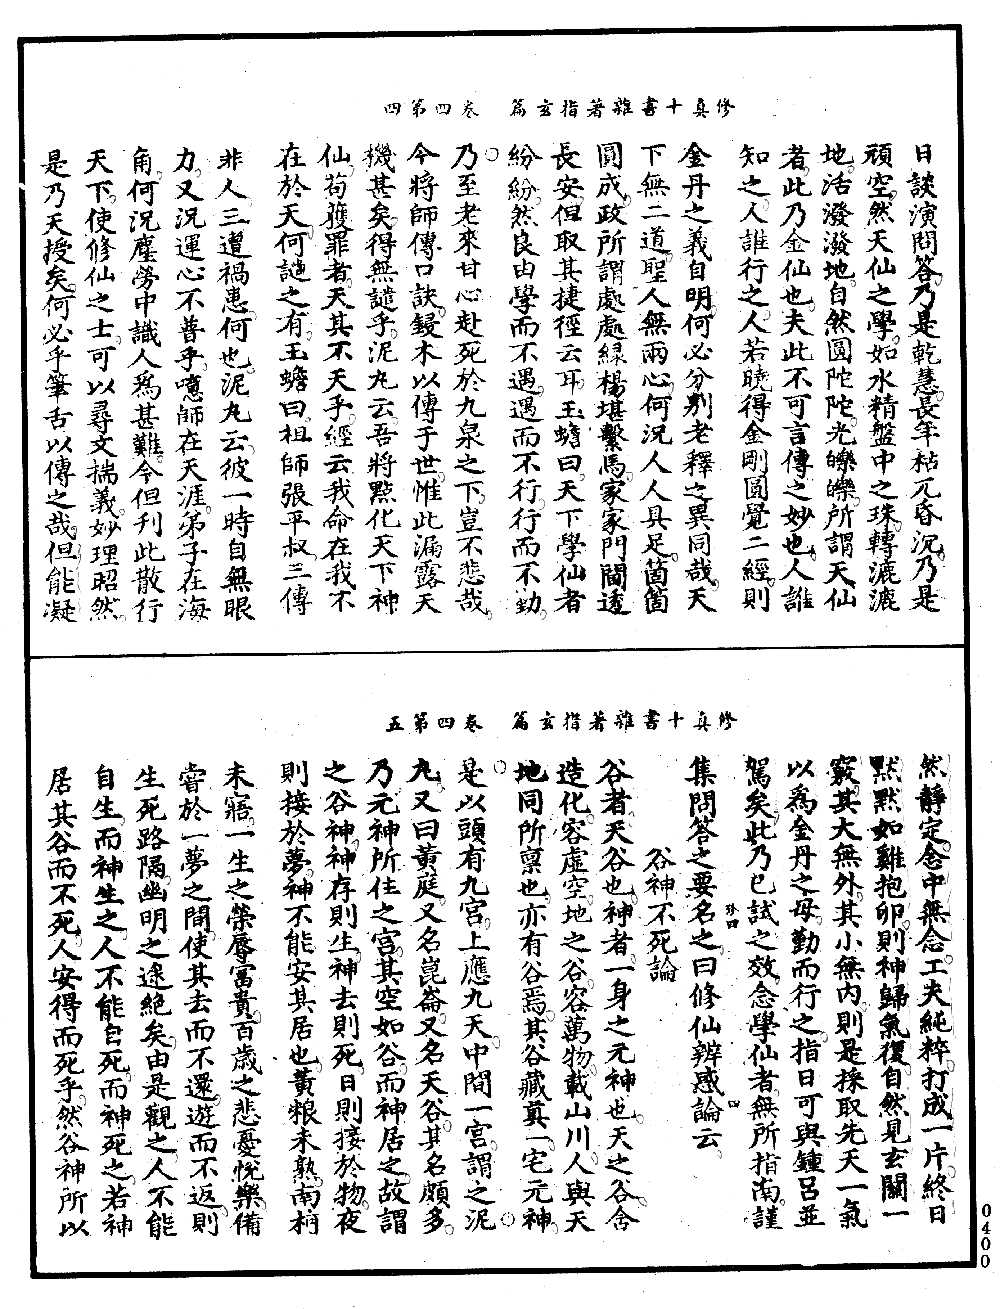 修真十書雜著指玄篇　卷四第四
日談演問答乃是乾慧長年枯兀昏沉乃是
頑空然天仙之學如水精盤中之珠轉漉漉
地活潑潑地自然圓陀陀光皪皪所謂天仙
者此乃金仙也夫此不可言傳之妙也人誰
知之人誰行之人若曉得金剛圓覺二經則
金丹之義自明何必分別老釋之異同哉天
下無二道聖人無兩心何況人人具足箇箇
圓成政所謂處處綠楊堪繫馬家家門閫透
長安但取其捷徑云耳玉蟾曰天下學仙者
紛紛然良由學而不遇遇而不行行而不勤
乃至老來甘心赴死於九泉之下豈不悲哉
今將師傳口訣鋟木以傳于世惟此漏露天
機甚矣得無譴乎泥丸云吾將點化天下神
仙苟獲罪者天其不天乎經云我命在我不
在於天何譴之有玉蟾曰祖師張平叔三傳
非人三遭禍患何也泥丸云彼一時自無眼
力又況運心不普乎噫師在天涯弟子在海
角何況塵勞中識人為甚難今但刊此散行
天下使修仙之士可以尋文揣義妙理昭然
是乃天授矣何必乎筆舌以傳之哉但能凝
修真十書雜著指玄篇　卷四第五
然靜定念中無念工夫純粹打成一片終日
默默如雞抱卵則神歸氣復自然見玄關一
竅其大無外其小無內則是採取先天一氣
以為金丹之母勤而行之指日可與鍾呂並
駕矣此乃已試之效念學仙者無所指南謹
集問答之要名之曰修仙辨惑論云
谷神不死論
谷者天谷也神者一身之元神也天之谷含
造化容虛空地之谷容萬物載山川人與天
地同所禀也亦有谷焉其谷藏真一宅元神
是以頭有九宮上應九天中間一宮謂之泥
丸又曰黃庭又名崑崙又名天谷其名頗多
乃元神所住之宮其空如谷而神居之故謂
之谷神神存則生神去則死日則接於物夜
則接於夢神不能安其居也黃粮未熟南柯
未寤一生之榮辱富貴百歲之悲憂悅樂備
嘗於一夢之間使其去而不還遊而不返則
生死路隔幽明之途絕矣由是觀之人不能
自生而神生之人不能自死而神死之若神
居其谷而不死人安得而死乎然谷神所以
0400